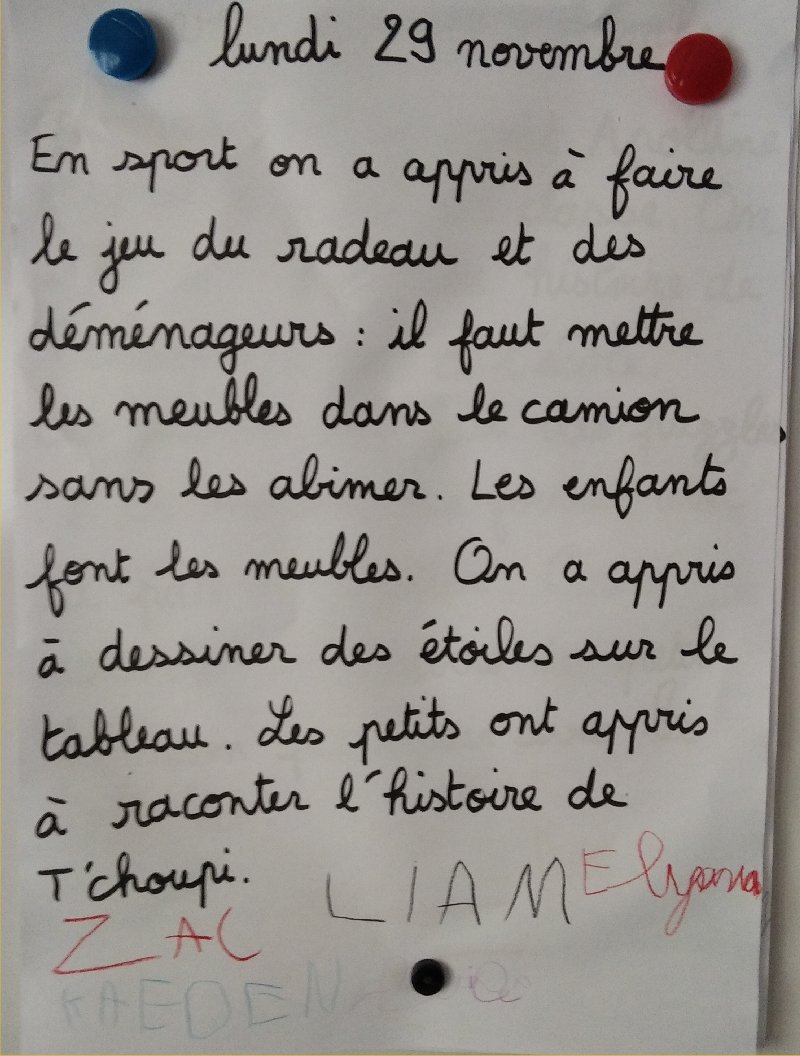 lundi 29 novembre
En sport on a appris à faire
le jeu du radeau et des
déménageurs : il faut mettre
les meubles dans le camion
sans les abimer. Les enfants
font les meubles. On a appris
à dessiner des étoiles sur le
tableau. Les petits ont appris
à raconter l'histoire de
T'choupi.
LIAM Elyana
ZAC
KAEDEN